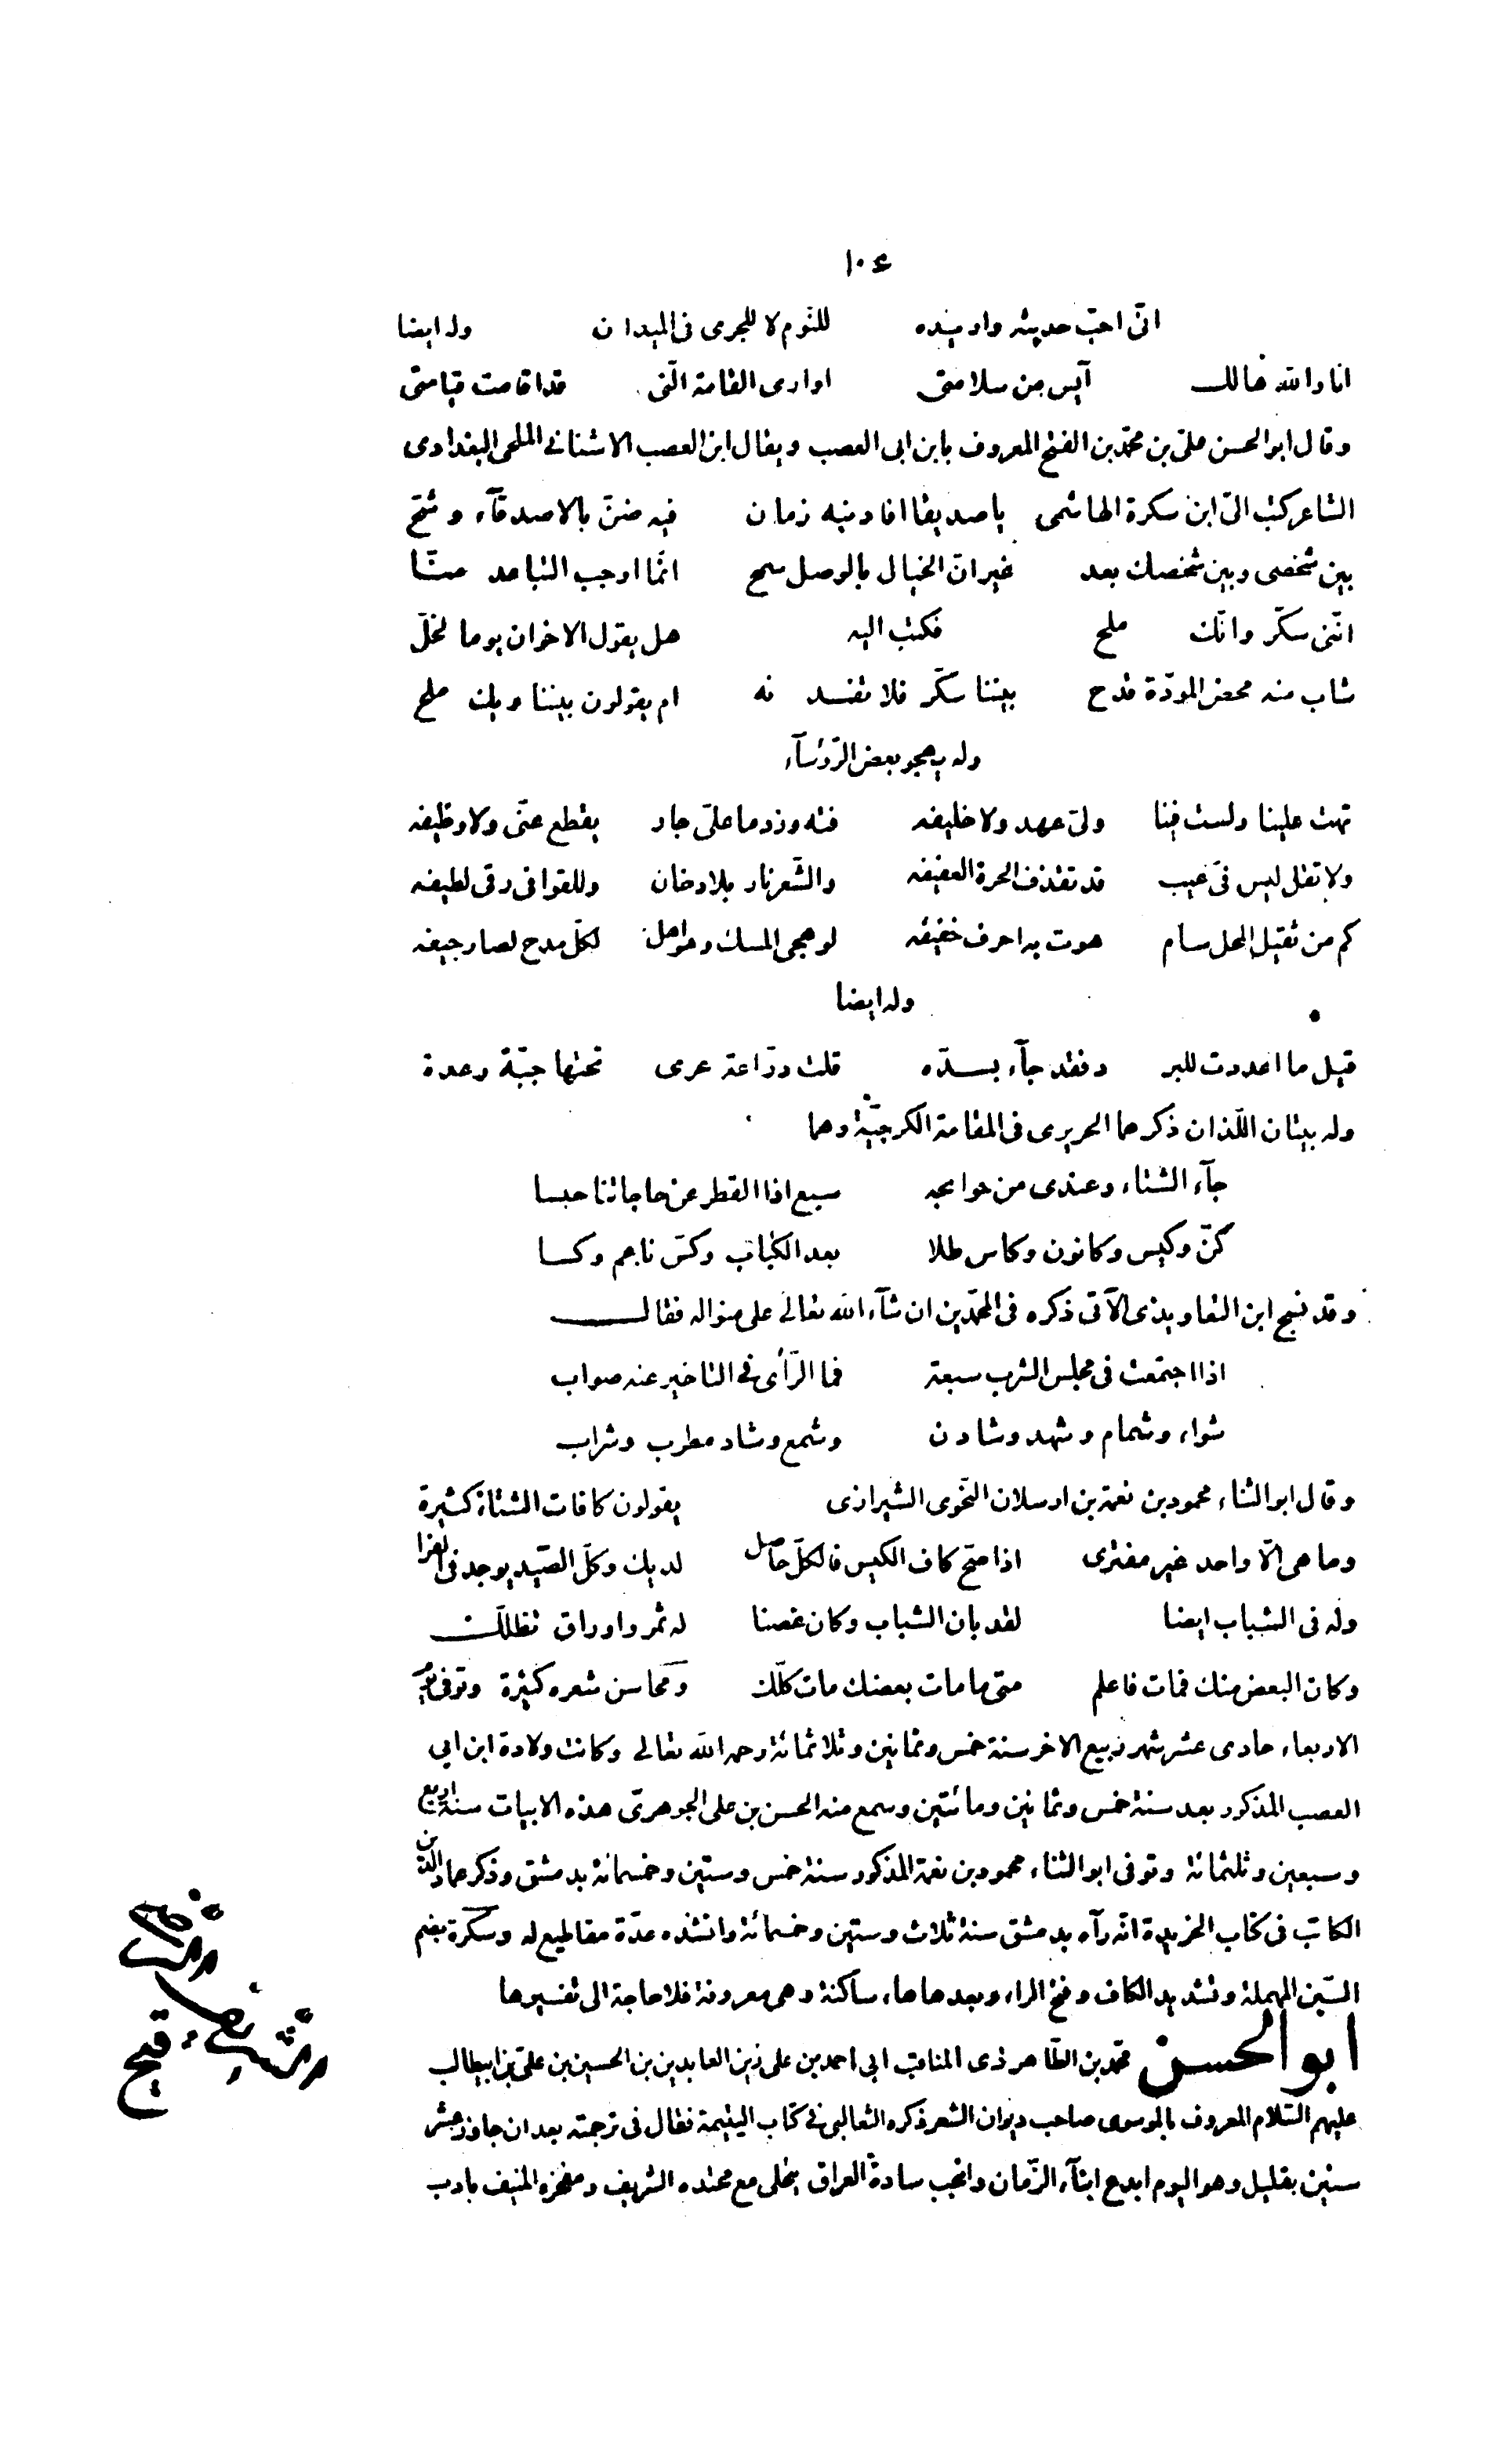 ١٠٤
انّى احبّ حديثه واريده للنّوم لا للجرى فى الميدان وله ايضا
انا والله هالك آيس من سلامتى اوارى القامة الّتى قد اقامت قيامتى
وقال ابو الحسن علىّ بن محمّد بن الفتح المعروف بابن ابى العصب ويقال ابن العصب الاشنانى الملحى البغدادى
الشاعر كتب الىّ ابن سكرة الهاشمى يا صديقا افادنيه زمان فيه ضنّ بالاصدقآء وشحّ
بين شخصى وبين شخصك بعد غير انّ الخيال بالوصل سمح انّما اوجب التباعد منّا
انّنى سكّر وانّك ملح فكتب اليه هل يقول الاخوان يوما لخلّ
شاب منه محض المودّة قدح بيننا سكّر فلا تفسد نه ام يقولون بيننا ويك ملح
وله يهجو بعض الرّؤسآء
تهت علينا ولست فينا ولىّ عهد ولا خليفه فته وزد ما علىّ جار يقطع عنّى ولا وظيفه
ولا تقل ليس فىّ عيب قد تقذف الحرة العفيفه والشّعر نار بلا دخان وللقوافى رقى لطيفه
كم من ثقيل المحل سام هوت به احرف خفيفه لو هجى المسك وهو اهل لكلّ مدح لصار جيفه
وله ايضا
قيل ما اعددت للبر د فقد جآء بشدّه قلت درّاعة عرى تحتها جبّة رعدة
وله بيتان اللّذان ذكرهما الحريرى فى المقامة الكرجيّة وهما
جآء الشتاء وعندى من حوائجه سبع اذا القطر عن حاجاتنا حبسا
كنّ وكيس وكانون وكاس طلا بعد الكباب وكسّ ناعم وكسا
وقد نسج ابن التعاويذى الآتى ذكره فى المحمّدين ان شآء الله تعالى على منواله فقال
اذا اجتمعت فى مجلس الشرب سبعة فما الرّأى فى التاخير عنه صواب
شواء وشمام وشهد وشادن وشمع وشاد مطرب وشراب
وقال ابو الثناء محمود بن نعمة بن ارسلان النّحوى الشيرازى يقولون كافات الشتاة كثيرة
وما هى الّا واحد غير مفترى اذا صحّ كاف الكيس فالكلّ حاصل لديك وكلّ الصّيد يوجد فى الفرا
وله فى الشباب ايضا لقد بان الشباب وكان غصنا له ثمر واوراق تظلّك
وكان البعض منك فمات فاعلم متى ما مات بعضك مات كلّك ومحاسن شعره كثيرة وتوفى يوم
الاربعاء حادى عشر شهر ربيع الاخر سنة خمس وثمانين وثلاثمائة رحمه الله تعالى وكانت ولادة ابن ابى
العصب المذكور بعد سنة خمس وثمانين ومائتين وسمع منه الحسن بن على الجوهرىّ هذه الابيات سنة اربع
وسبعين وثلثمائة وتوفى ابو الثناء محمود بن نعمة المذكور سنة خمس وستين وخمسمائة بدمشق وذكر عماد الدّين
الكاتب فى كتاب الخريدة انّه رآه بدمشق سنة ثلاث وستين وخمسمائة وانشده عدّة مقاطيع له وسكّرة بضم
السّين المهملة وتشديد الكاف وفتح الراء وبعدها هاء ساكنة وهى معروفة فلا حاجة الى تفسيرها
ابو الحسن محمّد بن الطّاهر ذى المناقب ابى احمد بن على زين العابدين بن الحسين بن علىّ بن ابيطالب
عليهم السّلام المعروف بالموسوى صاحب ديوان الشعر ذكره الثعالبى فى كتاب اليتيمة فقال فى ترجمته بعد ان جاوز عشر
سنين بقليل وهو اليوم ابدع ابنآء الزّمان وانجب سادة العراق يتحلى مع محتده الشريف ومفخره المنيف بادب
الشريف الرضى